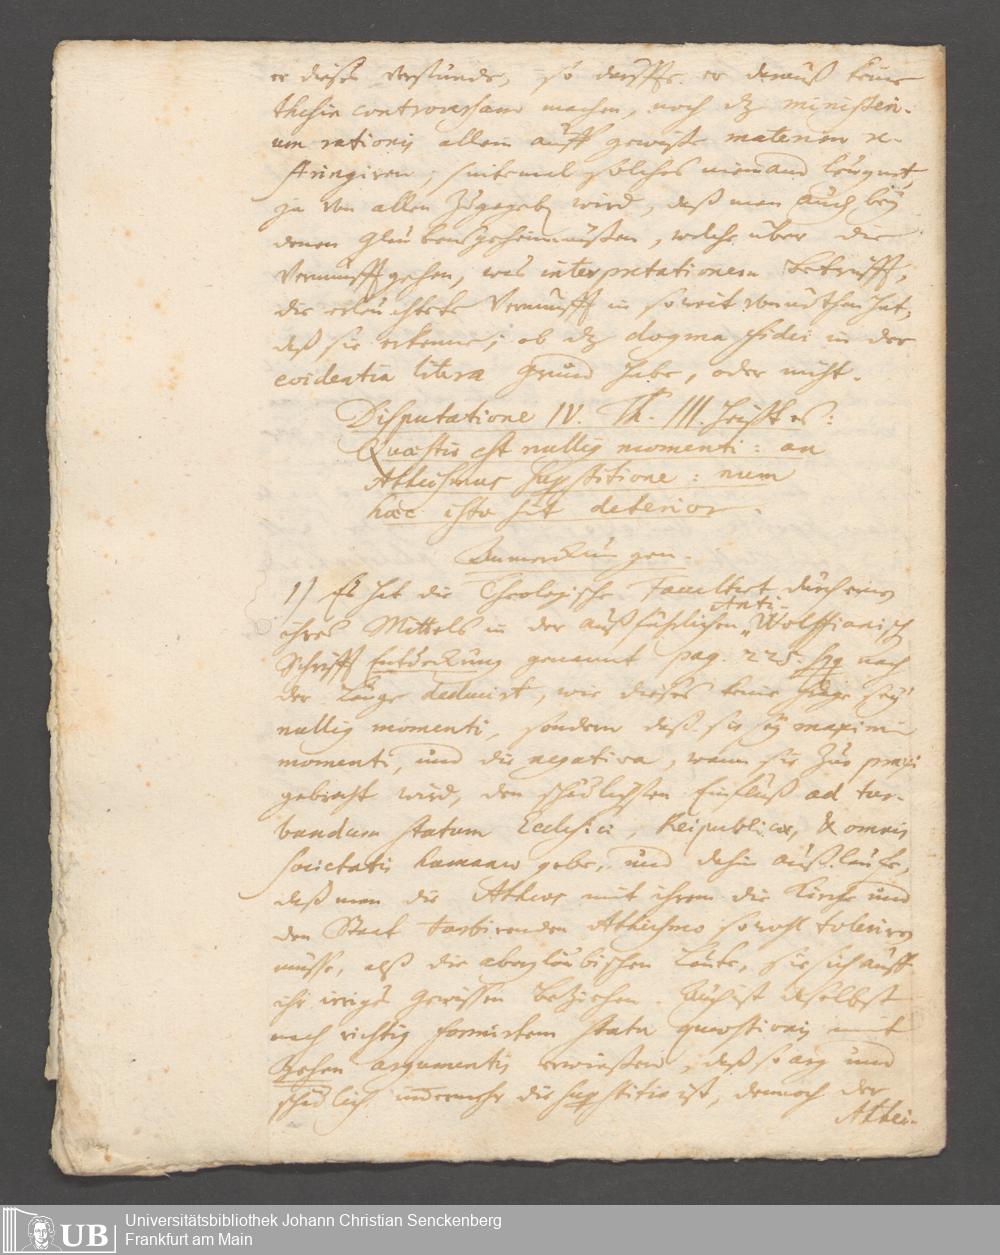 er dieses verstünde, so darffe er darauß keine
thesin controversam machen, noch dz ministeri-
um rationis allein auff gewiße materien re-
stringiren, sintemal solches niemand leugnet,
ja von allen zugegeb. wird, daß man auch bey
denen Glaubensgeheimnüßen, welche über die
Vernunfft gehen, was interpretationem betrifft,
die erleuchtete Vernunfft in so weit vonnöthen hat,
daß sie erkenne, ob dz dogma fidei in der
evidentia litera Grund habe, oder nicht.
Disputatione IV. Th. III. heißt es:
Quæstio est nullius momenti: an
Atheismus superstitione: num
hæc isto sit deterior.
Anmerckungen.
1) Es hat die Theologische Facultet durch eines
ihres Mittels in der außführlichen Anti-Wolffianisch
Schrifft Entdeckung genannt pag. 225 sqq nach
der Länge deducirt, wie dieses keine Frage sey
nullius momenti, sondern daß sie sey maximi
momenti, und die negativa, wann sie zur praxi
gebracht wird, den schädlichsten Einfluß ad tur-
bandum statum Ecclesiæ, Reipublicæ, & omnis
societatis humanæ gebe, und dahin außlauffe,
daß man die Atheos mit ihrem die Kirche und
den Staat turbirenden Atheismo sowohl toleriren
müsse, alß die abergläubischen Leute, die sich auff
ihr irriges Gewissen beziehen. Auch ist daselbst
nach richtig formirtem statu quæstionis mit
Zehen argumentis erwiesen, daß so arg und
schädlich immermehr die superstitio ist, dennoch der
Athei-
Universitätsbibliothek Johann Christian Senckenberg
Frankfurt am Main
UB